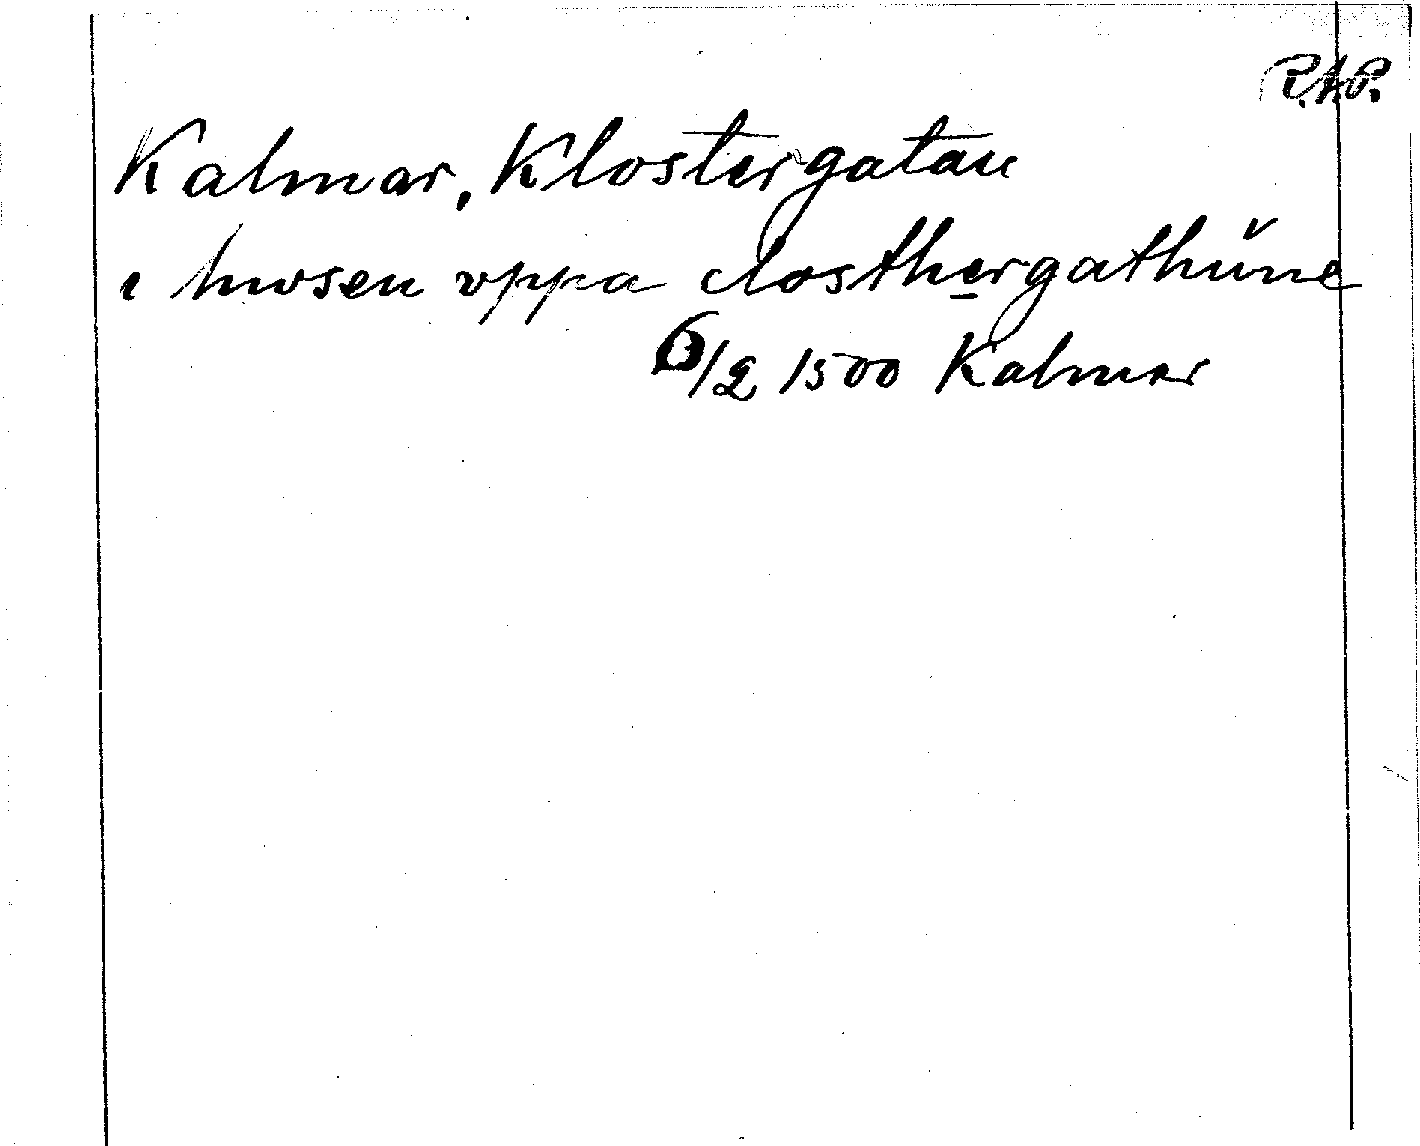 R.A.P.
Kalmar, Klostergatan
i hwsen vppa closthergathune
6/2 1500 Kalmar